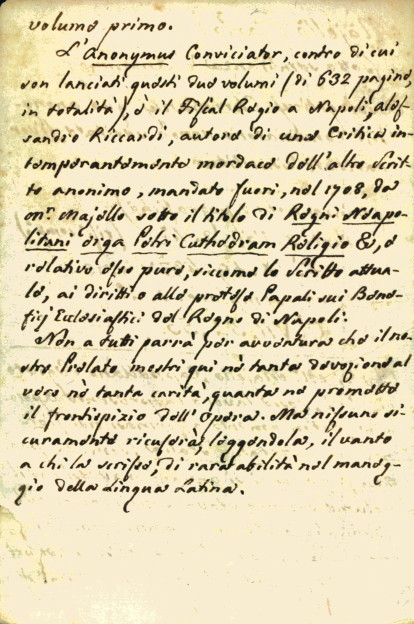 volume primo.
L'Anonymus Conviciator, contro di cui
son lanciati questi due volumi (di 632 pagine,
in totalità), è il Fiscal Regio a Napoli, Ales-
sandro Riccardi, autore di una Critica in-
temperantemente mordace dell'altro Scrit-
to anonimo, mandato fuori, nel 1708, da
Monr. Majello sotto il titolo di Regni Neapo-
litani erga Petri Cathedram Religio &c, e
relativo esso pure, siccome lo Scritto attua-
le, ai diritti o alle pretese Papali sui Bene-
ficj Ecclesiastici del Regno di Napoli.
Non a tutti parrà per avventura che il no-
stro Prelato mostri qui nè tanta devozione al
vero nè tanta carità, quanta ne promette
il frontispizio dell'Opera. Ma nissuno si-
curamente ricuserà, leggendola, il vanto
a chi la scrisse, di rara abilità nel maneg-
gio della Lingua Latina.